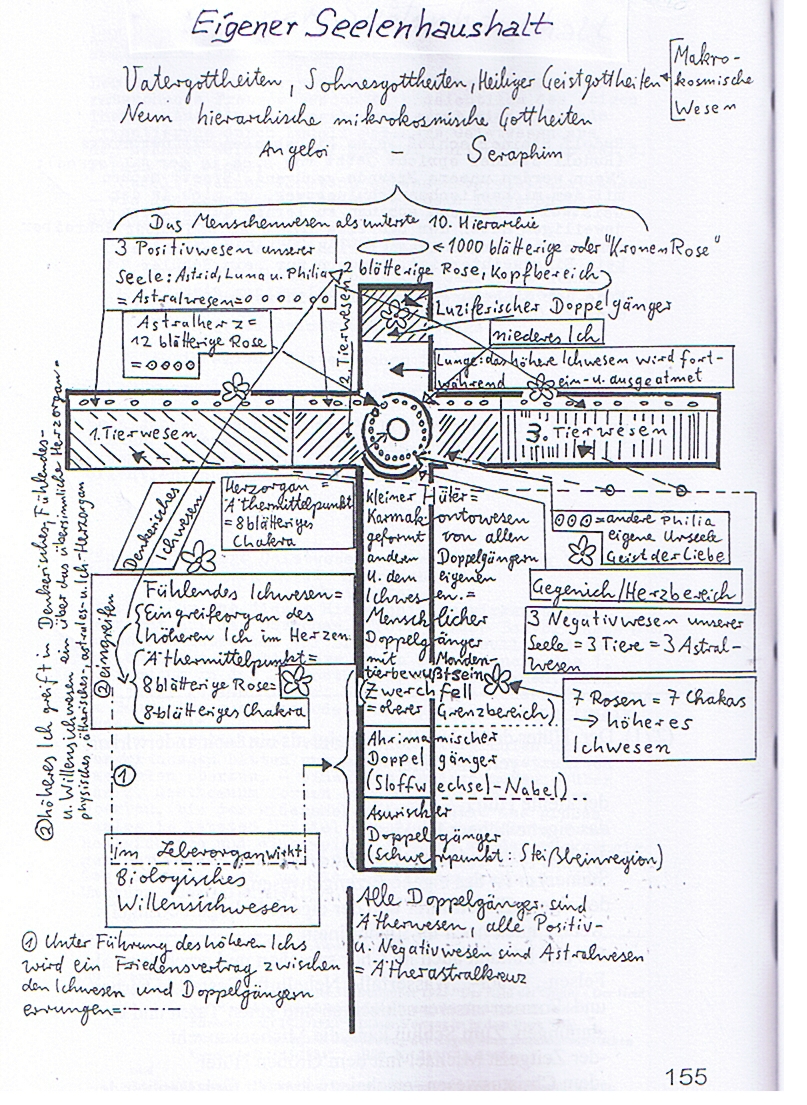 Eigener Seelenhaushalt
Vatergottheiten, Sohnesgottheiten, Heiliger Geistgottheiten
Makro-
kosmische
Wesen
Neun hierarchische mikrokosmische Gottheiten
Angeloi - Seraphim
Das Menschenwesen als unterste 10. Hierarchie
3 Positivwesen unserer
Seele: Astrid, Luna u. Philia
= Astralwesen=o o o o o o
<1000 blätterige oder "KronenRose"
2 blätterige Rose, Kopfbereich
Astralherz=
12 blätterige Rose
=oooo
2 Tierwesen
Luziferischer Doppelgänger
niederes Ich
Lunge: das höhere Ichwesen wird fort-
während ein- u. ausgeatmet
1. Tierwesen
3. Tierwesen
Denkerisches
Ichwesen
Herzorgan=
Äthermittelpunkt
=8blätteriges
Chakra
Kleiner Hüter=
Karmakontowesen
geformt von allen
anderen Doppelgängern
u. dem eigenen
Ichwesen.=
Menschlicher
Doppelgänger
mit Monden-
tierbewußtsein
(Zwerchfell
=oberer Grenzbereich)
ooo=andere Philia
eigene Urseele
Geist der Liebe
Gegenich/Herzbereich
3 Negativwesen unserer
Seele=3 Tiere=3 Astral-
wesen
7 Rosen=7 Chakas
→ höheres
Ichwesen
Fühlendes Ichwesen=
Eingreifeorgan des
höheren Ich im Herzen
Äthermittelpunkt=
8blätterige Rose=
8-blätteriges Chakra
② eingreifen
② höheres Ich greift in Denkerischen, Fühlendes-
u. Willensichwesen ein über das übersinnliche Herzorgan=
physisches-, ätherisches-, astrales- u. Ich-Herzorgan
①
Ahrimanischer
Doppelgänger
(Stoffwechsel-Nabel)
Asurischer
Doppelgänger
(Schwerpunkt: Steißbeinregion)
Im Leberorgan wirkt
Biologisches
Willensichwesen
Alle Doppelgänger sind
Ätherwesen, alle Positiv-
u. Negativwesen sind Astralwesen
= Ätherastralkreuz
① Unter Führung des höheren Ichs
wird ein Friedensvertrag zwischen
den Ichwesen und Doppelgängern
errungen=-·-·-·-
155